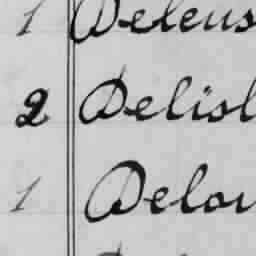 1 Deleus
2 Delisl
1 Delor